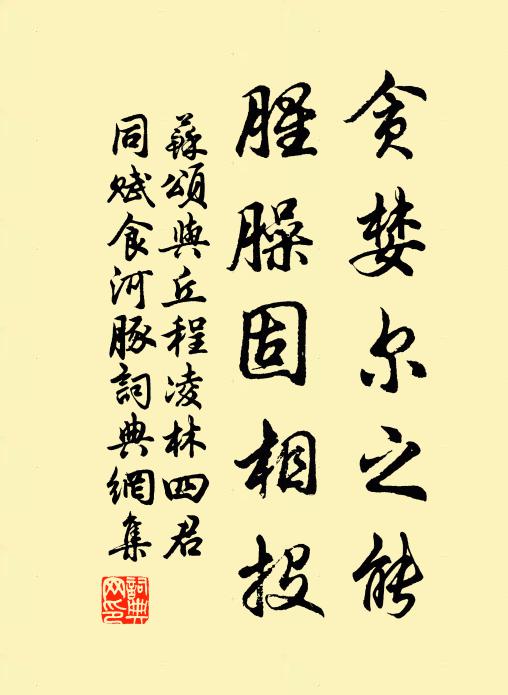 貪婪尔之能
腥臊固相投
蘇頌與丘程凌林四君
同賦食河豚詞典網集